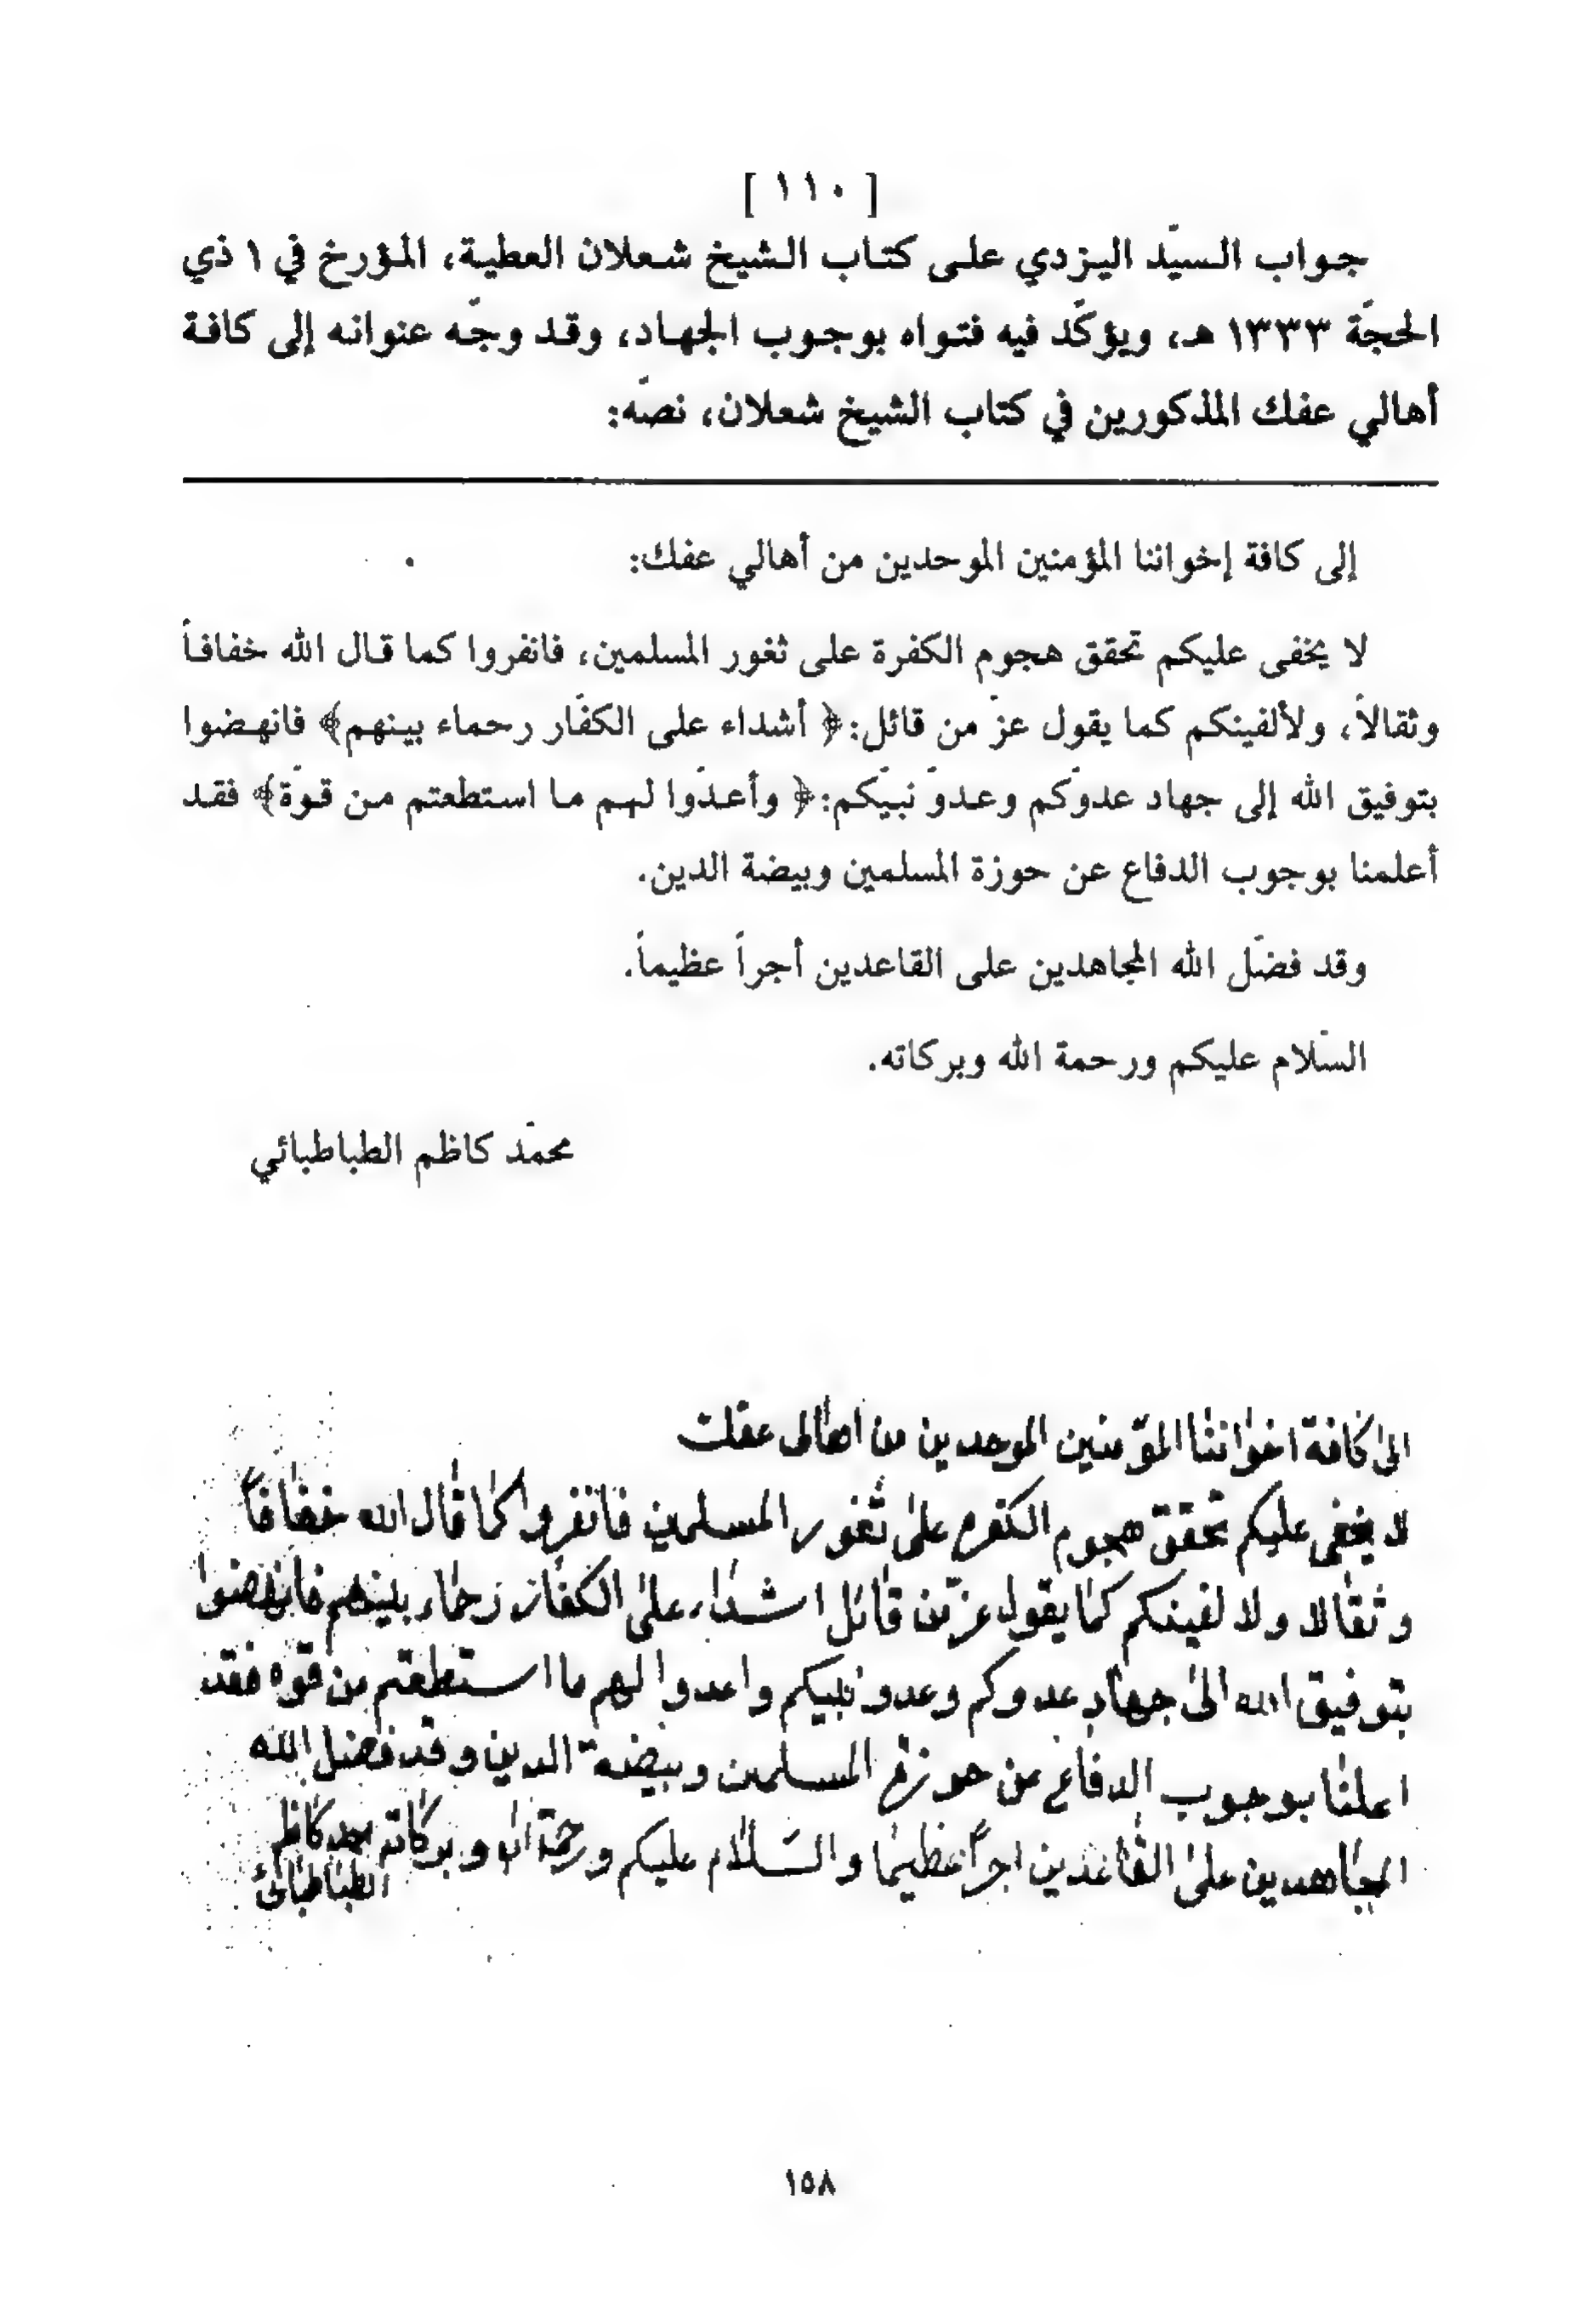 [ ١١٠ ]
جواب السيّد اليزدي على كتاب الشيخ شعلان العطية، المؤرخ في ١ ذي
الحجّة ١٣٣٣ هـ، ويؤكّد فيه فتواه بوجوب الجهاد، وقد وجّه عنوانه إلى كافة
أهالي عفك المذكورين في كتاب الشيخ شعلان، نصّه:
إلى كافة إخواننا المؤمنين الموحدين من أهالي عفك:
لا يخفى عليكم تحقق هجوم الكفرة على ثغور المسلمين، فانفروا كما قال الله خفافاً
وثقالاً، ولألفينكم كما يقول عزّ من قائل: ﴿ أشداء على الكفّار رحماء بينهم﴾ فانهضوا
بتوفيق الله إلى جهاد عدوّكم وعدوّ نبيّكم: ﴿ وأعدّوا لهم ما استطعتم من قوّة﴾ فقد
أعلمنا بوجوب الدفاع عن حوزة المسلمين وبيضة الدين.
وقد فضّل الله المجاهدين على القاعدين أجراً عظيماً.
السّلام عليكم ورحمة الله وبركاته.
محمّد كاظم الطباطبائي
الى كافة اخواننا المؤمنين الموحدين من اهالى عفك
لا يخفى عليكم تحقق هجوم الكفره على ثغور المسلمين فانفروا كما قال الله خفافاً
وثقالا ولالفينكم كما يقول عزّ من قائل اشداء على الكفار رحماء بينهم فانهضوا
بتوفيق الله الى جهاد عدوكم وعدو نبيكم واعدوا لهم ما استطعتم من قوه فقد
اعلمنا بوجوب الدفاع عن حوزة المسلمين وبيضة الدين وقد فضل الله
المجاهدين على القاعدين اجراً عظيما والسّلام عليكم ورحمة الله وبركاته محمد كاظم
الطباطبائى
١٥٨